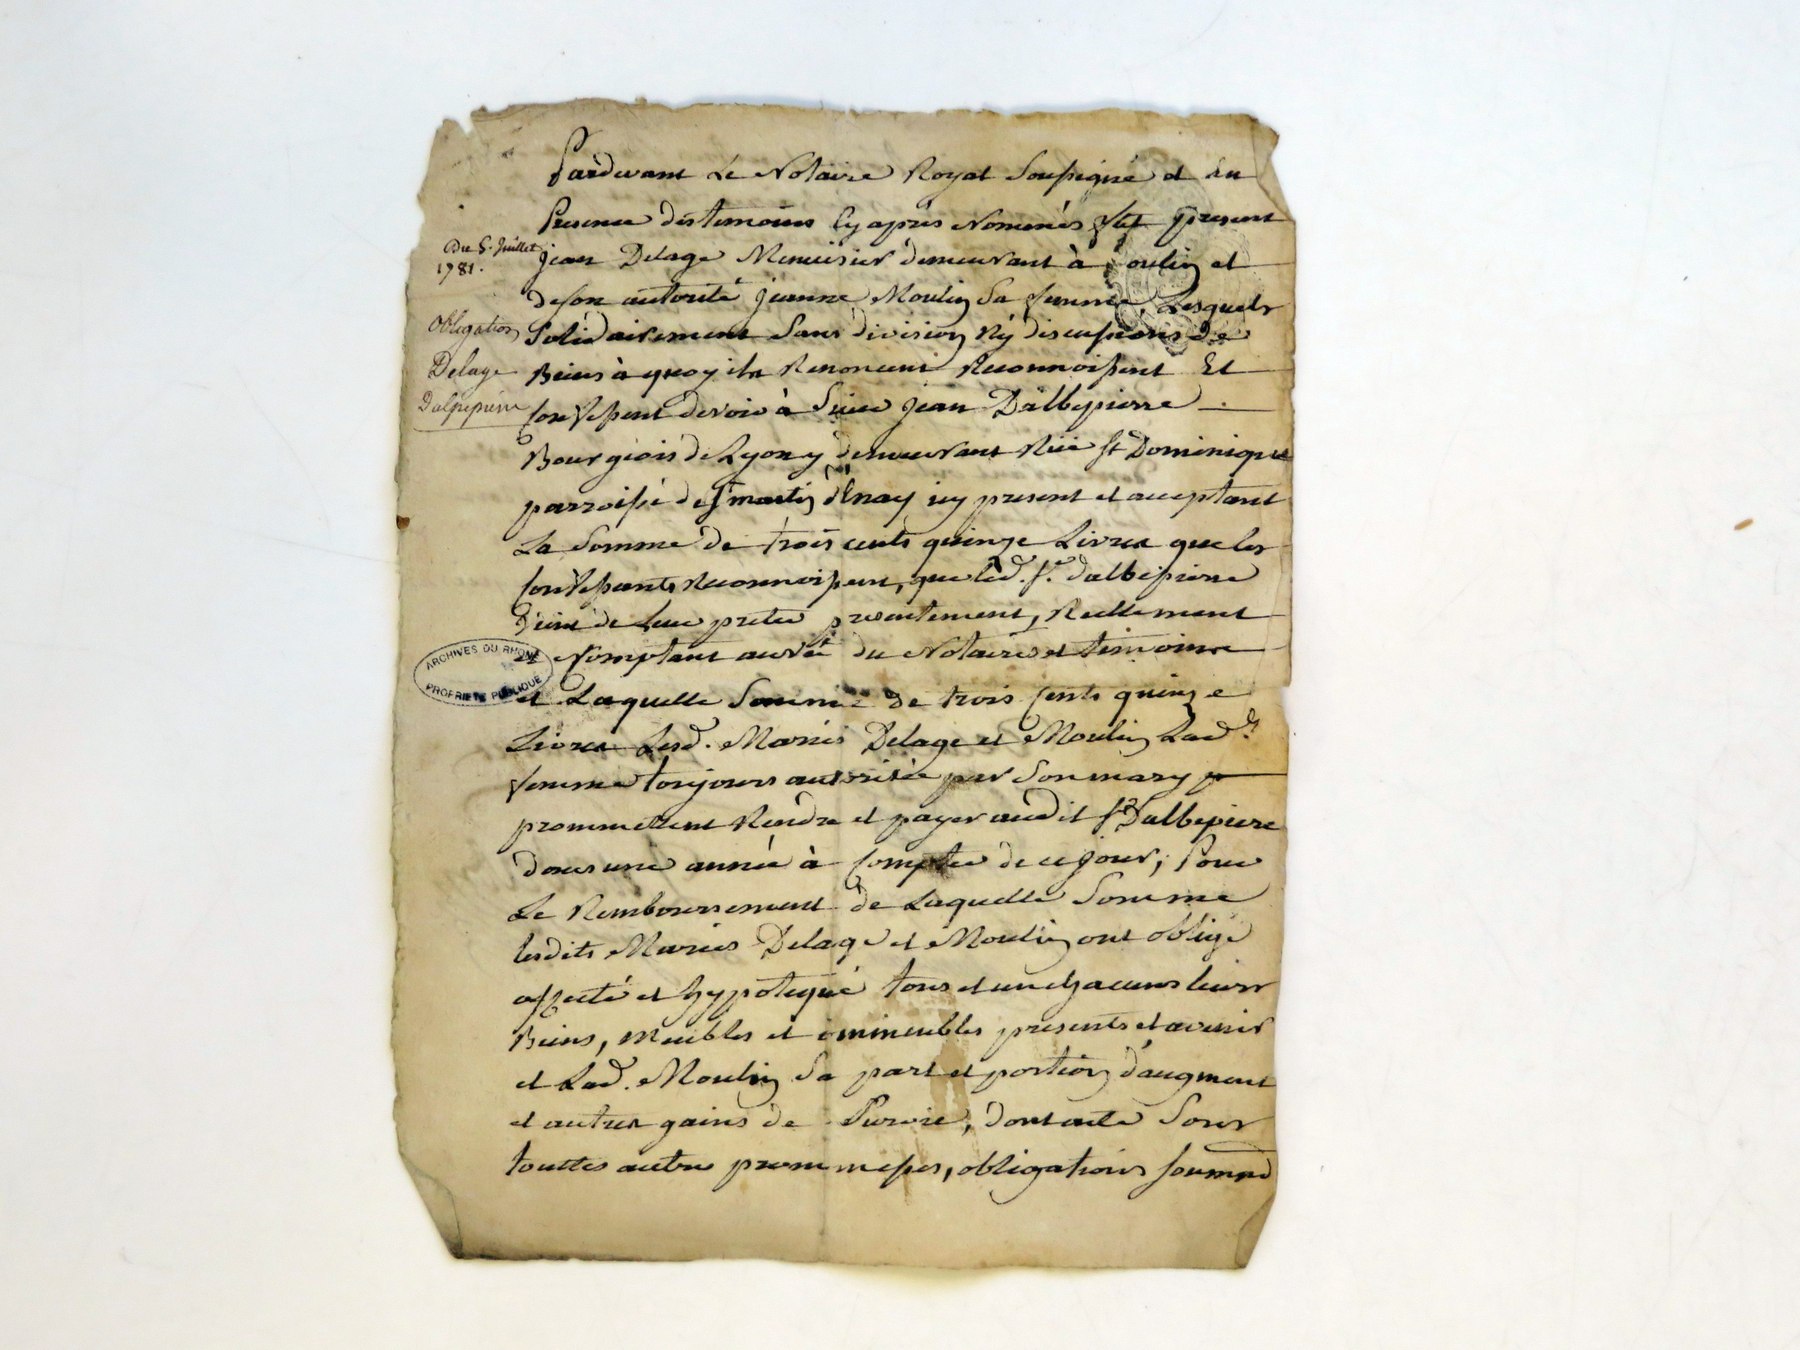 Pardevant Le Notaire Royal Soussigné et En
Presence des temoins Cy après Nommés fut present
Du 5. Juillet
1781.
jean Delage Menuisier demeurant à oulin et
de son autorité jeanne Moulin Sa femme, Lesquels
Obligation
Solidairement Sans division Ny discussions de
Delage
Biens à quoy ils Renoncent Reconnoissent Et
Dalbepierre
Confessent devoir à Sieur jean Dalbepierre
Bourgeois de Lyon y demeurant Rüe St Dominique
parroisse de St martin d'Enay icy present et acceptant
La Somme de trois cents quinze Livres que les
Confessants Reconnoissent, que led. Sr. dalbepierre
Vient de Leur preter presentement, Reellement
et Comptant au vû du Notaire et temoins
ARCHIVES DU RHONE
PROPRIETE PUBLIQUE
et Laquelle Somme de trois Cents quinze
Livres Lesd. Mariés Delage et Moulin Lad.
femme toujours autorisée par Son mary
prommettent Rendre et payer audit Sr Dalbepierre
dans une année à Compter de ce jour; Pour
Le Remboursement de Laquelle Somme
lesdits Mariés Delage et Moulin ont obligé
affecté et hypotequé tous et un chacuns leurs
Biens, meubles et immeubles presents et avenir
et Lad. Moulin Sa part et portion d'augment
et autres gains de Survie, dont acte Sous
touttes autres prommesses, obligations soumnd